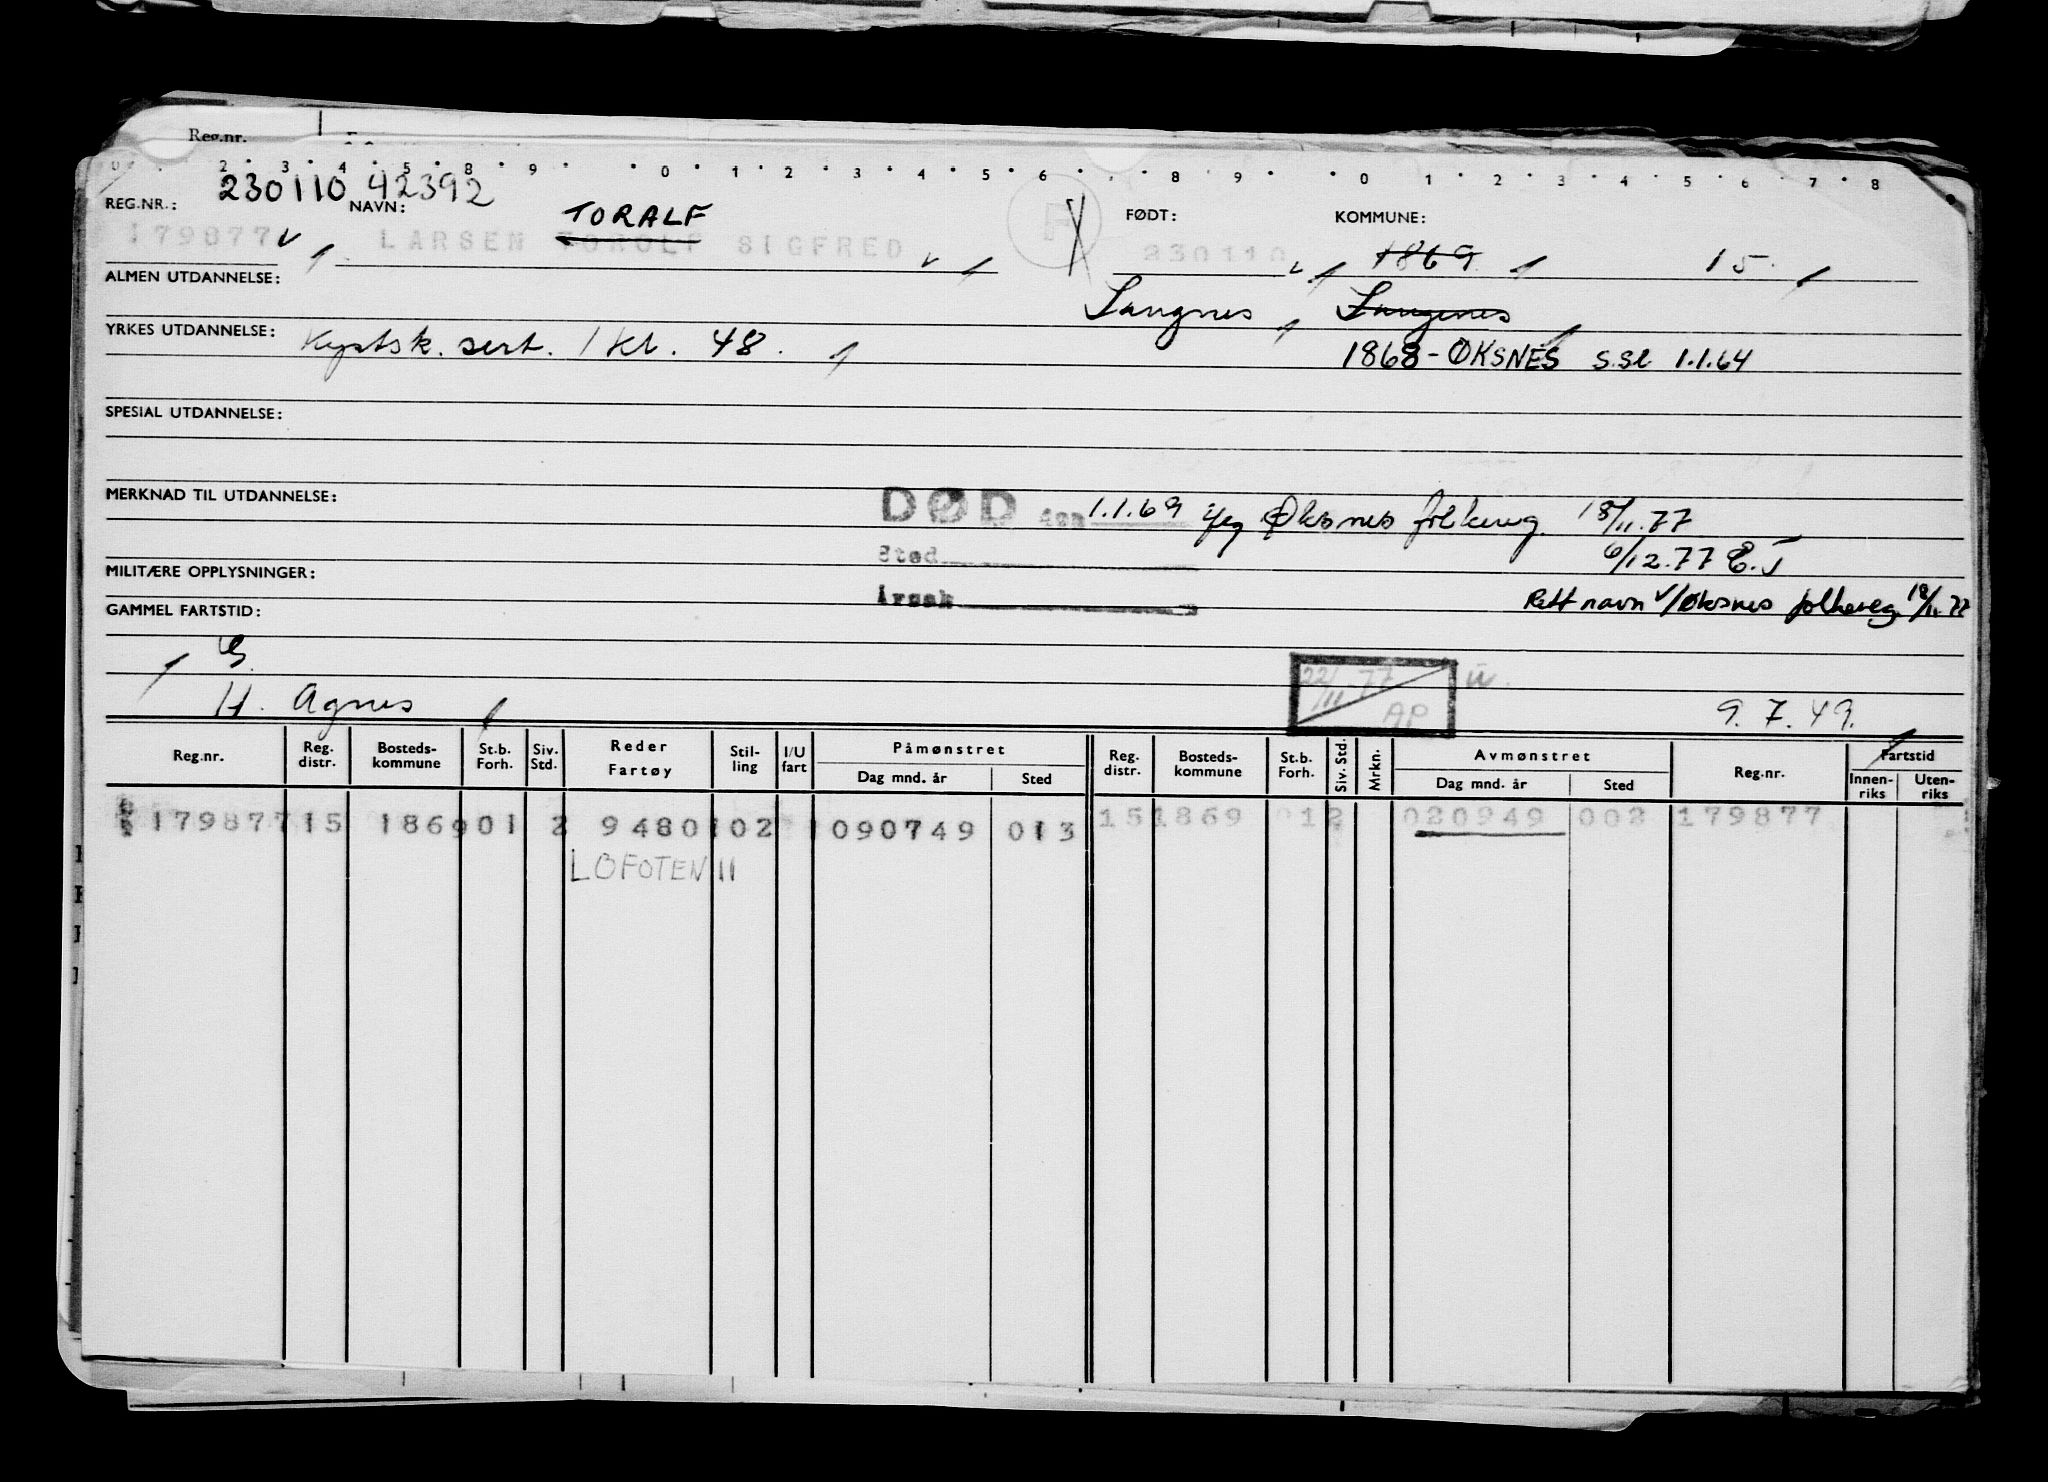 Reg.nr.
2 3 4 5 8 9 0 1 2 3 4 5 6 8 9 0 1 2 3 4 5 6 7 8
230110 42392
REG.NR.: NAVN: TORALF FØDT: KOMMUNE:
179877 LARSEN TOROLF SIGFRED F 230110 1869 15
ALMEN UTDANNELSE:
Langnes Langenes
YRKES UTDANNELSE: Kystsk. sert. 1 kl. 48.
1868-ØKSNES S.SL 1.1.64
SPESIAL UTDANNELSE:
MERKNAD TIL UTDANNELSE:
DØD den 1.1.69 iflg Øksnes folkereg. 18/11.77
Sted 6/12.77 E.J
MILITÆRE OPPLYSNINGER:
Årsak Rett navn v/Øksnes folkereg 18/11 77
GAMMEL FARTSTID:
G.
H. Agnes
22/11-77 AP
9.7.49.
Reg.nr. Reg. distr. Bosteds-kommune St.b. Forh. Siv. Std. Reder Fartøy Stil-ling I/U fart Påmønstret Dag mnd. år Sted Reg. distr. Bosteds-kommune St.b. Forh. Siv. Std. Mrkn. Avmønstret Dag mnd. år Sted Reg.nr. Fartstid Innen-riks Uten-riks
179877 15 1869 01 2 9480 102 090749 013 15 1869 01 2 020949 002 179877
LOFOTEN II